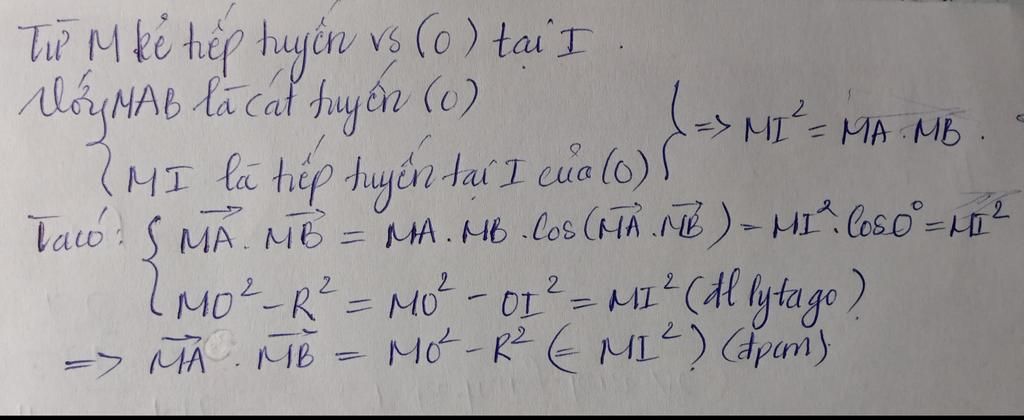 Từ M kẻ tiếp tuyến vs (O) tại I.
Vì MAB là cát tuyến (O)
MI là tiếp tuyến tại I của (O) } => MI² = MA.MB.
Ta có: { \overrightarrow{MA}.\overrightarrow{MB} = MA.MB.Cos(\overrightarrow{MA}.\overrightarrow{MB}) = MI².Cos0° = MI²
MO² - R² = MO² - OI² = MI² (đl Pytago)
=> \overrightarrow{MA}.\overrightarrow{MB} = MO² - R² (= MI²) (đpcm)